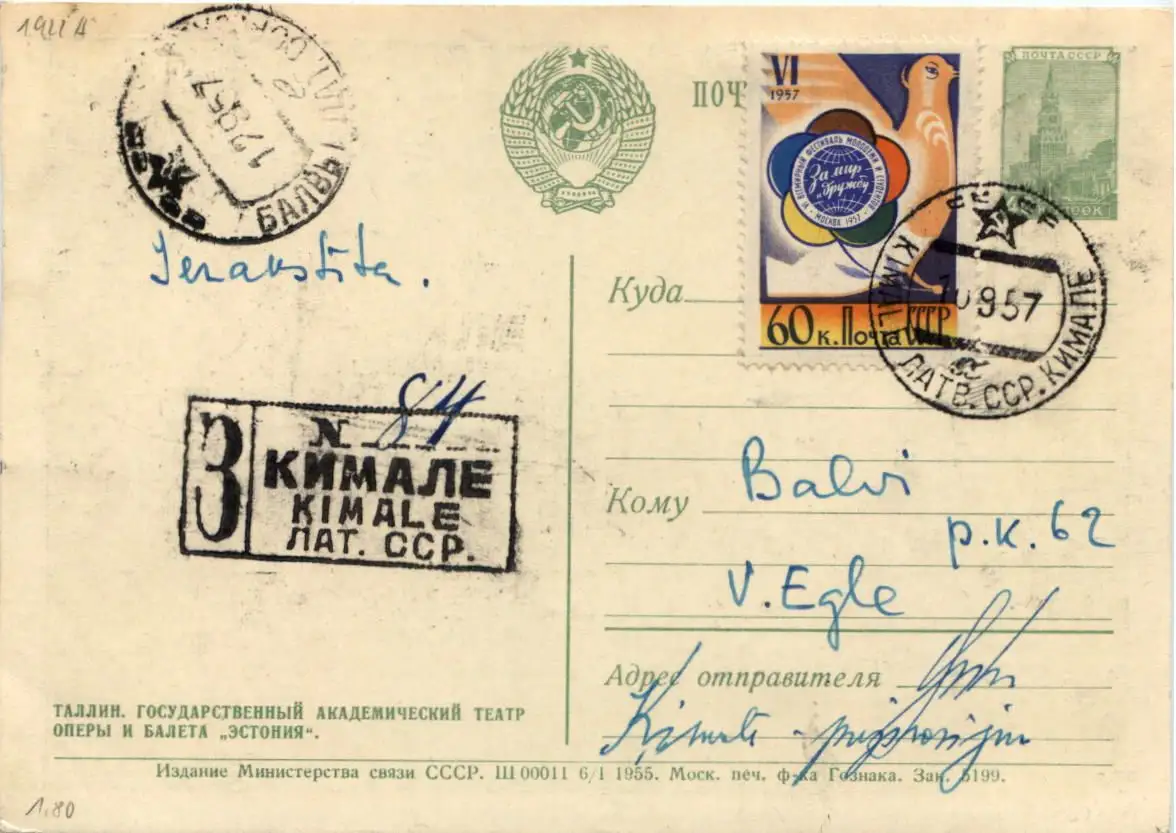 1911 A
БАЛВЫ
12 9 57
ПОЧТА СССР
VI
1957
VI ВСЕМИРНЫЙ ФЕСТИВАЛЬ МОЛОДЕЖИ И СТУДЕНТОВ
За мир
и дружбу
МОСКВА 1957
60 к. Почта СССР
KIMALE ЛАТВ. ССР. КИМАЛЕ
10 9 57
Ierakstīta.
Куда
N 84
З
КИМАЛЕ
KIMALE
ЛАТ. ССР.
Кому
Balvi
p.k. 62
V. Egle
Адрес отправителя
ТАЛЛИН. ГОСУДАРСТВЕННЫЙ АКАДЕМИЧЕСКИЙ ТЕАТР
ОПЕРЫ И БАЛЕТА „ЭСТОНИЯ“.
Издание Министерства связи СССР. Ш 00011 6/I 1955. Моск. печ. ф-ка Гознака. Зак. 5199.
1.80